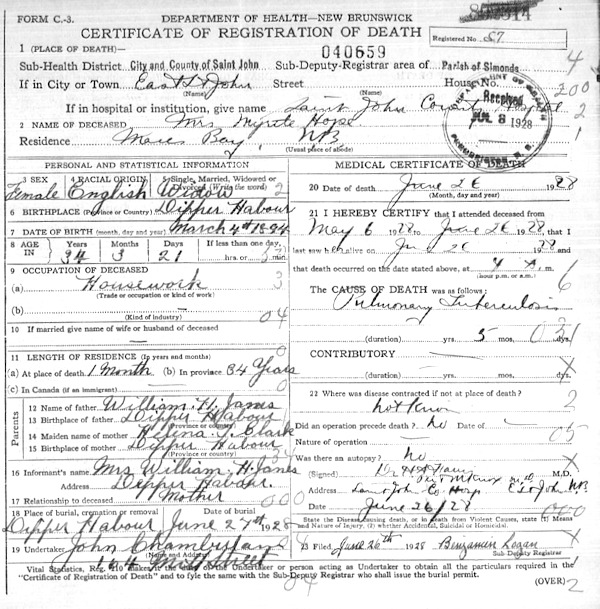 FORM C.-3.
DEPARTMENT OF HEALTH—NEW BRUNSWICK
CERTIFICATE OF REGISTRATION OF DEATH
Registered No. 57
1 (PLACE OF DEATH)—
040659
Sub-Health District City and County of Saint John Sub-Deputy-Registrar area of Parish of Simonds
If in City or Town East St John Street House No.
(Name) (Name)
If in hospital or institution, give name Saint John County
Received
JUL 8 1928
2 NAME OF DECEASED Mrs Myrtle Hope
Residence Maces Bay, NB
(Usual place of abode)
PERSONAL AND STATISTICAL INFORMATION
3 SEX 4 RACIAL ORIGIN 5 Single, Married, Widowed or Divorced (Write the word)
Female English Widow
6 BIRTHPLACE (Province or Country) Dipper Habour
7 DATE OF BIRTH (month, day and year) March 4th 1894
8 AGE IN Years Months Days If less than one day,
34 3 21 hrs. or min.
9 OCCUPATION OF DECEASED
(a) Housework
(Trade or occupation or kind of work)
(b) —
(Kind of industry)
10 If married give name of wife or husband of deceased
—
11 LENGTH OF RESIDENCE (In years and months)
(a) At place of death 1 Month (b) In province 34 Years
(c) In Canada (if an immigrant)
Parents
12 Name of father William H. James
13 Birthplace of father Dipper Habour
(Province or Country)
14 Maiden name of mother Clark
15 Birthplace of mother Dipper Habour
(Province or Country)
16 Informant's name Mrs William H. James
Address Dipper Habour
17 Relationship to deceased Mother
18 Place of burial, cremation or removal Date of burial
Dipper Habour June 27th 1928
19 Undertaker John Chamberlain
(Name and Address)
MEDICAL CERTIFICATE OF DEATH
20 Date of death June 26 1928
(Month, day and year)
21 I HEREBY CERTIFY that I attended deceased from
May 6 1928 to June 26 1928 that I
last saw her alive on June 26 1928 and
that death occurred on the date stated above, at 4 A. m.
(hour p.m. or a.m.)
The CAUSE OF DEATH was as follows:
Pulmonary Tuberculosis
(duration) yrs. 5 mos.
CONTRIBUTORY —
(duration) — yrs. mos.
22 Where was disease contracted if not at place of death?
not known
Did an operation precede death? no Date of —
Nature of operation —
Was there an autopsy? no
(Signed) M.D.
Address Saint John Co Hosp E St John NB
Date June 26/28
State the Disease causing death, or in death from Violent Causes, state (1) Means and Nature of Injury; (2) whether Accidental, Suicidal or Homicidal.
23 Filed June 26th 1928 Benjamin Logan
Sub Deputy Registrar
Vital Statistics, Reg. 110 makes it the duty of the Undertaker or person acting as Undertaker to obtain all the particulars required in the
"Certificate of Registration of Death" and to fyle the same with the Sub-Deputy Registrar who shall issue the burial permit.
(OVER)